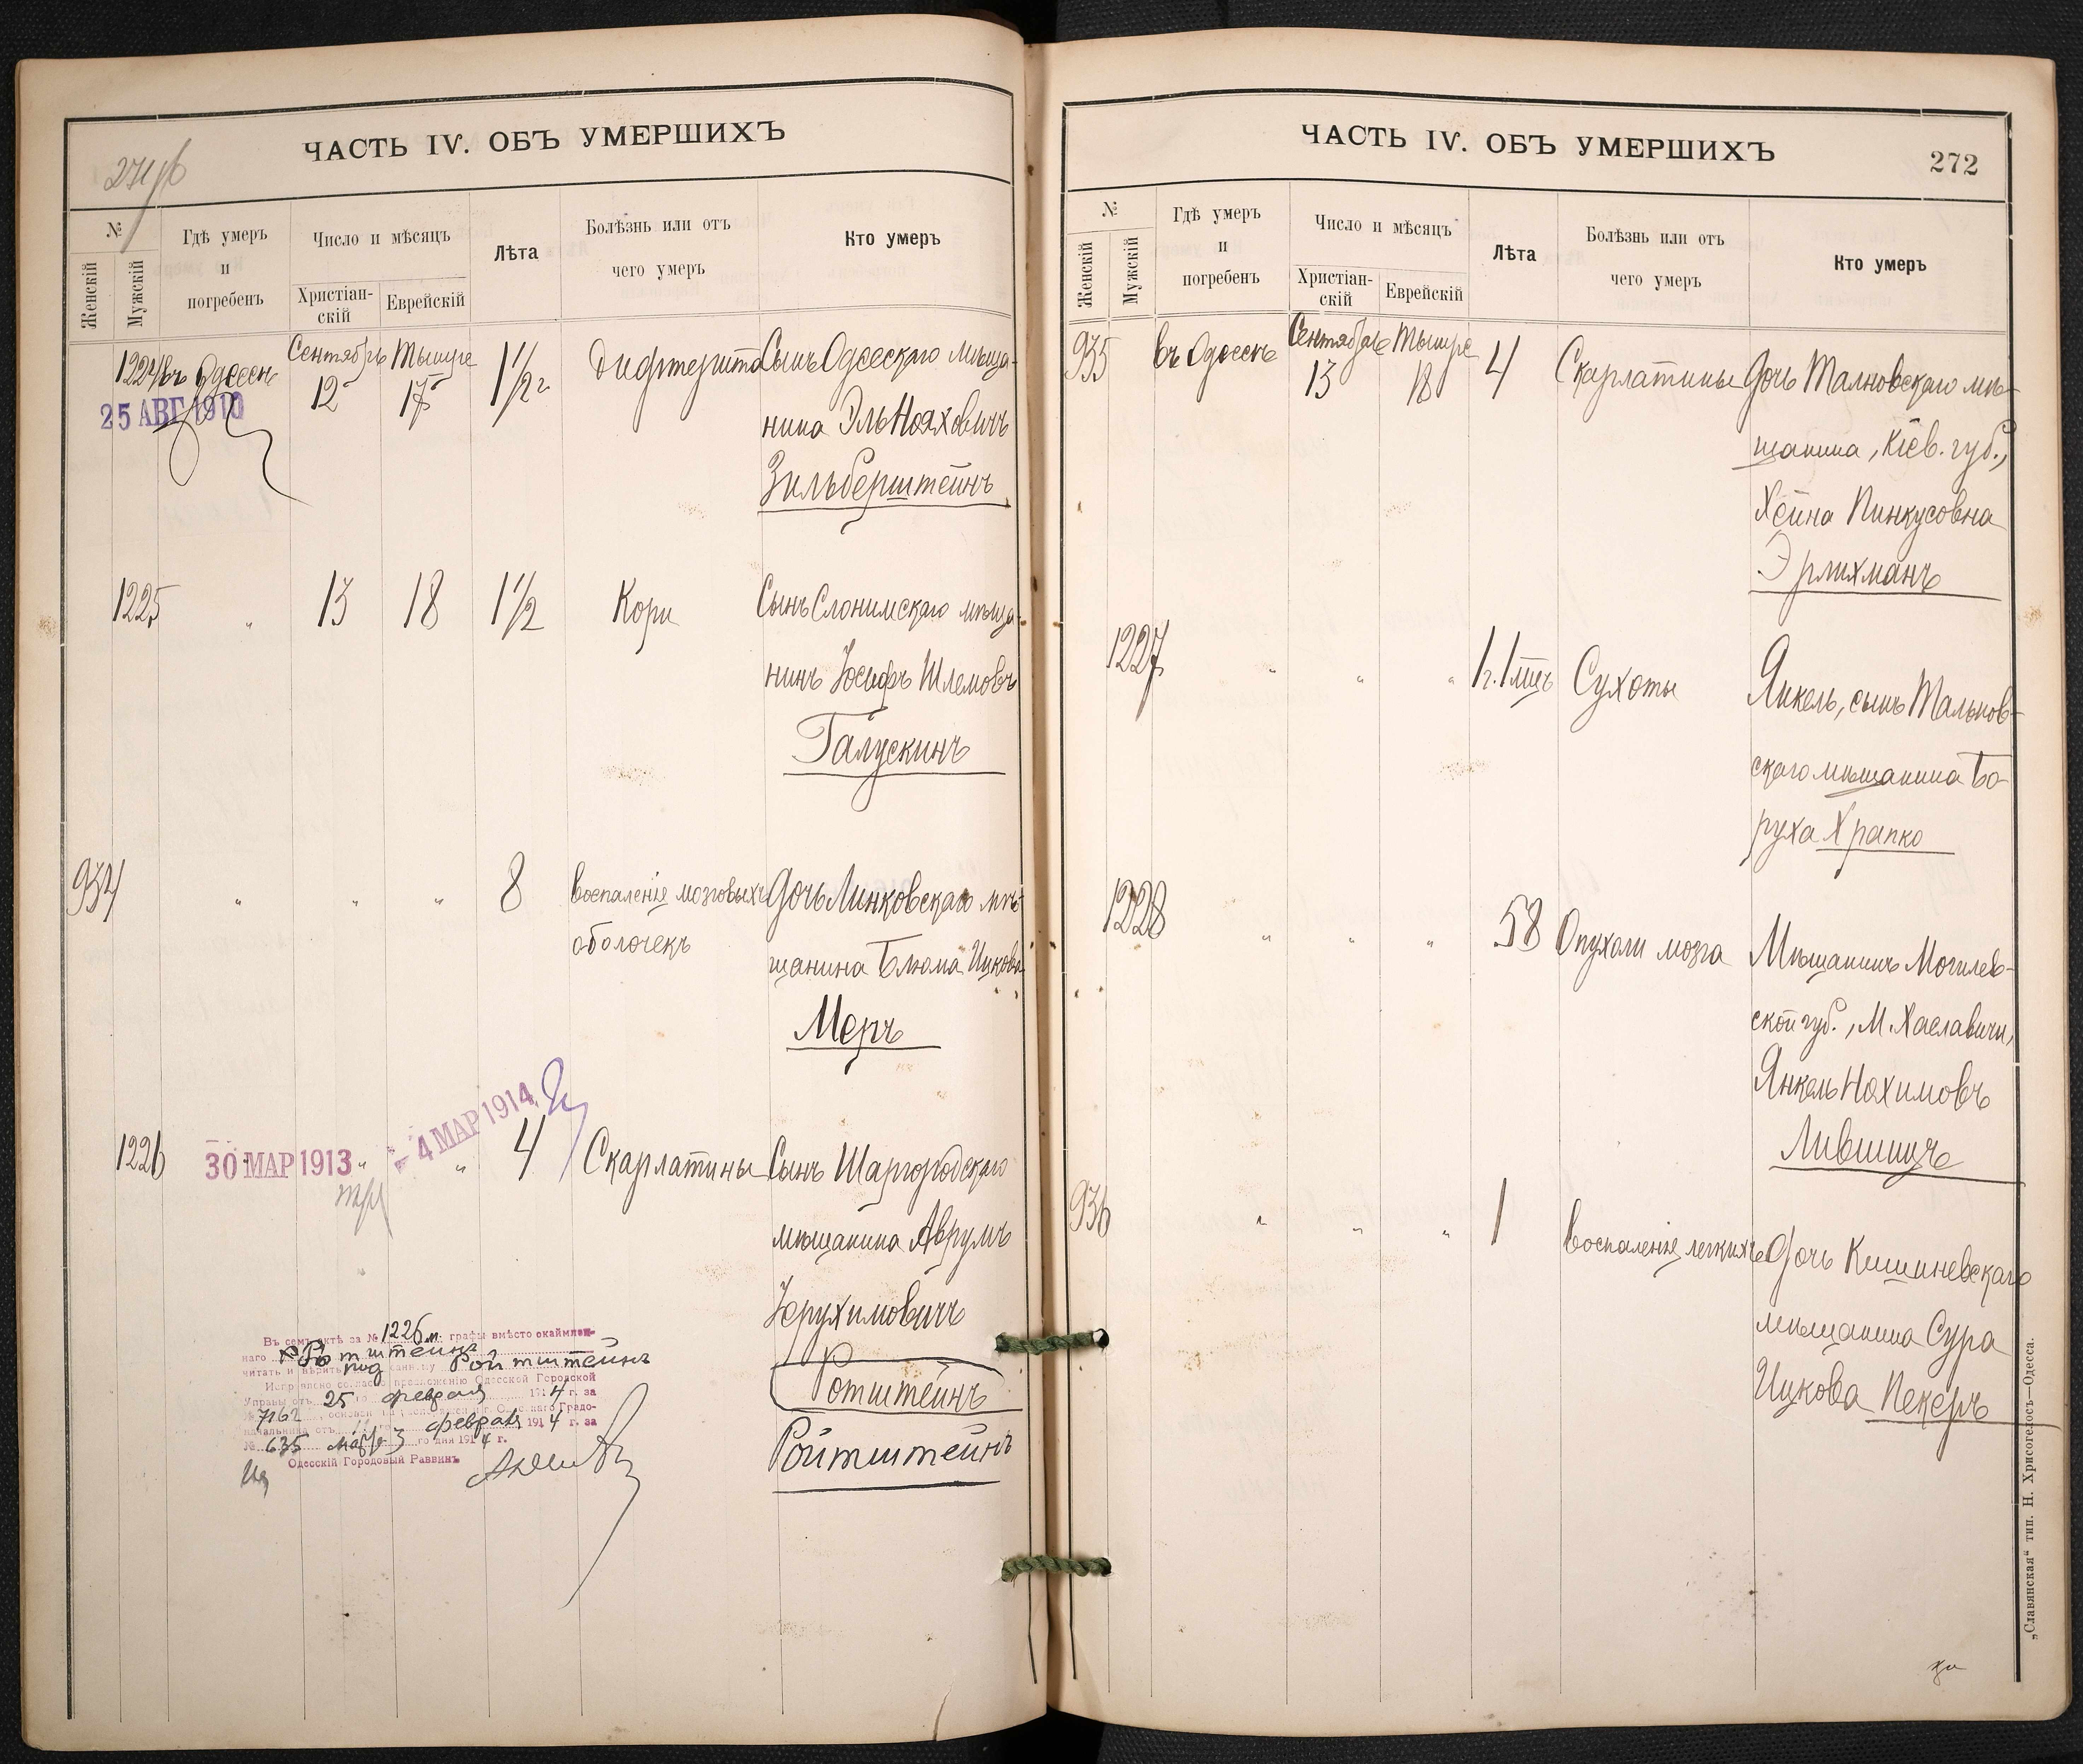 ЧАСТЬ IV. ОБЪ УМЕРШИХЪ
№
Женскій
Мужскій
Гдѣ умеръ
и
погребенъ
Число и мѣсяцъ
Христіан-
скій
Еврейскій
Лѣта
Болѣзнь или отъ
чего умеръ
Кто умеръ
1224 въ Одессѣ Сентябрь 12 17 1 1/2 г Дифтерита Сынъ Одесскаго мѣща-
25 АВГ 1910
нина Эль Нояховичъ
Зильберштейнъ
1225 " 13 18 1 1/2 Кори Сынъ Слонимскаго мѣща-
нинъ Іосифъ Шлемовъ
Галускинъ
934 " " " 8 Воспаленіе мозговыхъ Дочь Линковскаго мѣ-
оболочекъ
щанина Блюма Ицкова
Меръ
1226 30 МАР 1913 " - 4 МАР 1914 " 4 Скарлатины Сынъ Шаргородскаго
мѣщанина Аврумъ
Іерухимовичъ
Ротштейнъ
Ройтштейнъ
Въ семъ актѣ за № 1226 м. графы вмѣсто окаймлен-
наго Ротштейнъ
читать и вѣрить Ройтштейнъ
Исправлено согласно предложенію Одесской Городской
Управы отъ 25 февраля 1914 г. за
№ 7162
начальника отъ февраля 1914 г. за
№ 635 марта 3 го дня 1914 г.
Одесскій Городовый Раввинъ
ЧАСТЬ IV. ОБЪ УМЕРШИХЪ
272
№
Женскій
Мужскій
Гдѣ умеръ
и
погребенъ
Число и мѣсяцъ
Христіан-
скій
Еврейскій
Лѣта
Болѣзнь или отъ
чего умеръ
Кто умеръ
935 въ Одессѣ Сентябрь 13 18 4 Скарлатины Дочь Талновскаго мѣ-
щанина, Кіев. губ.,
Хейна Пинкусовна
Эрлихманъ
1227 " " " 1 г. 1 мѣс Сухоты Янкель, сынъ Тальнов-
скаго мѣщанина Бо-
руха Храпко
1228 " " " 58 Опухоли мозга Мѣщанинъ Могилев-
ской губ., М. Хаславичи,
Янкель Нохимовъ
Лившицъ
936 " " " 1 Воспаленіе легкихъ Дочь Кишиневскаго
мѣщанина Сура
Ицкова Пекеръ
„Славянская“ тип. Н. Хрисогелосъ—Одесса.